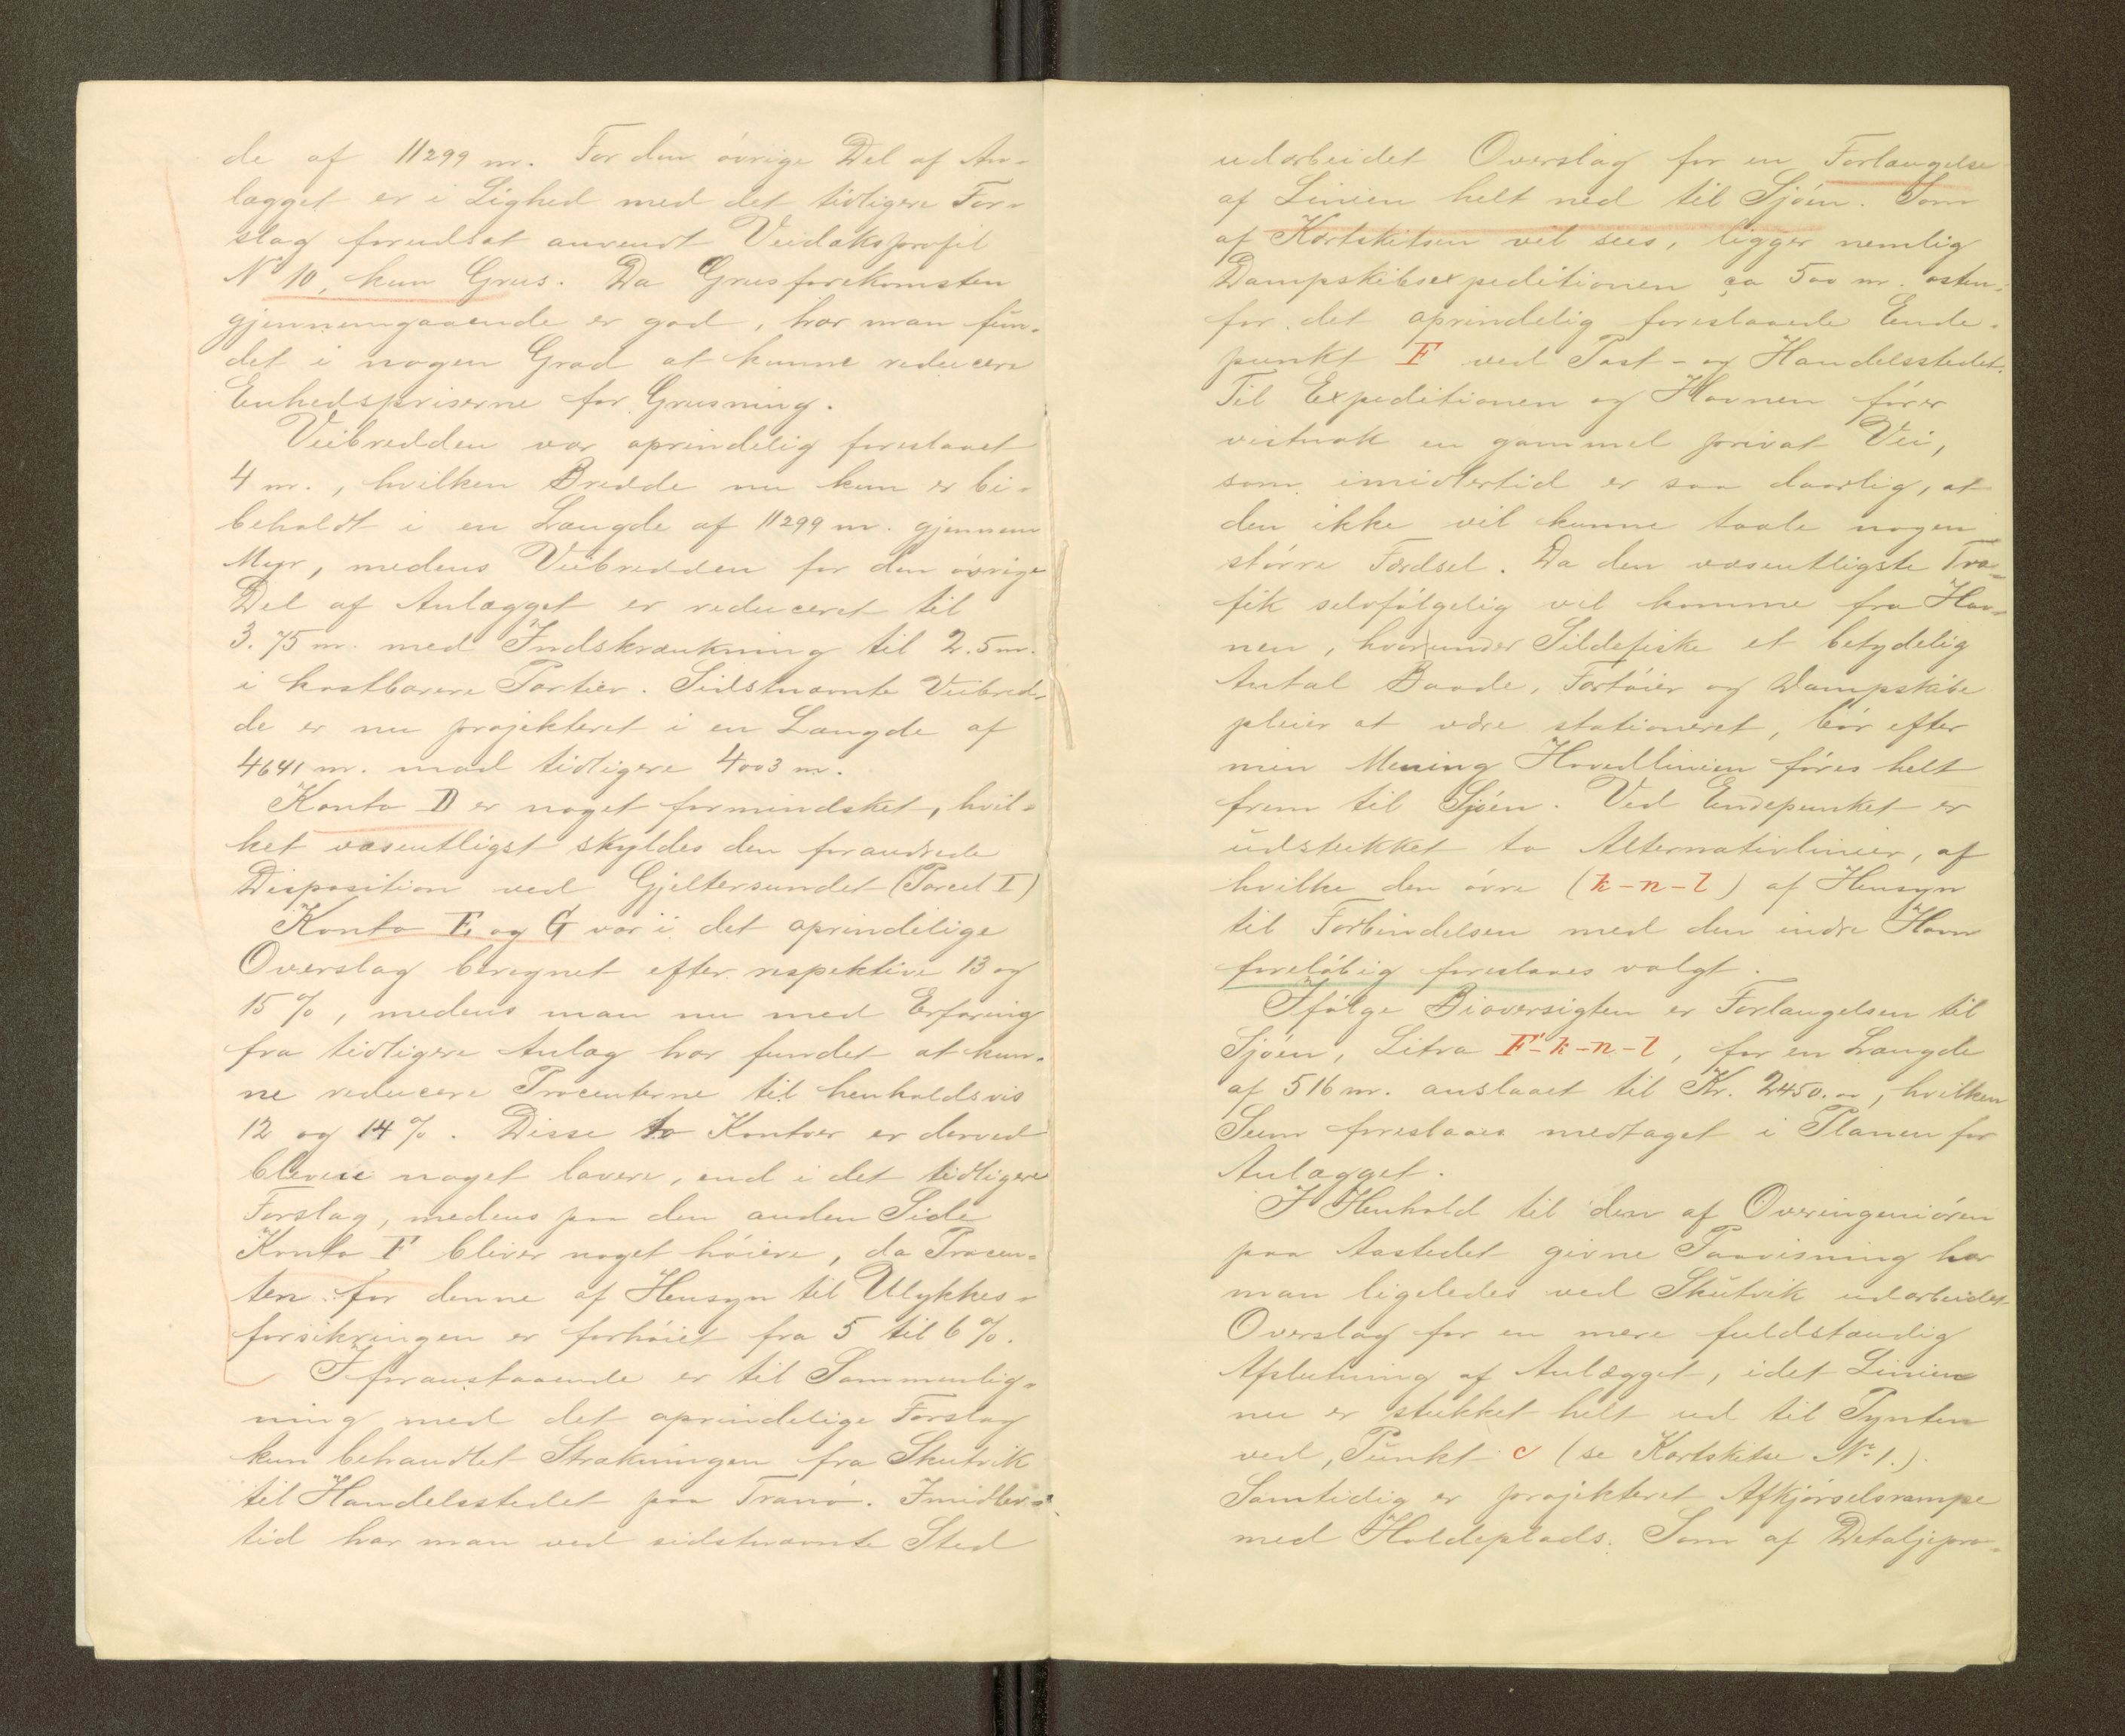 de af 11299 m. For den óvrige Del af An-
lægget er i Lighed med det tidligere For-
slag forudsat anvendt Veidæksprofil
No 10, kun Grus. Da Grusforekomsten
gjennemgaaende er god, har man fun-
det i nogen Grad at kunne reducere
Enhedspriserne for Grusning.
Veibredden var oprindelig foreslaaet
4 m., hvilken Bredde nu kun er bi-
beholdt i en Længde af 11299 m. gjennem
Myr, medens Veibredden for den óvrige
Del af Anlægget er reduceret til
3.75 m. med Indskrænkning til 2.5 m.
i kostbarere Partier. Sidstnævnte Veibred-
de er nu projekteret i en Længde af
4641 m. mod tidligere 4003 m.
Konto D er noget formindsket, hvil-
ket væsentligst skyldes den forandrede
Disposition ved Gjeltersundet (Parcel I)
Konto E og G var i det oprindelige
Overslag beregnet efter respektive 13 og
15 %, medens man nu med Erfaring
fra tidligere Anlæg har fundet at kun-
ne reducere Procenterne til henholdsvis
12 og 14 %. Disse to Kontoer er derved
blevne noget lavere, end i det tidligere
Forslag, medens paa den anden Side
Konto F bliver noget hóiere, da Procen-
ten for denne af Hensyn til Ulykkes-
forsikringen er forhóiet fra 5 til 6 %.
I foranstaaende er til Sammenlig-
ning med det oprindelige Forslag
kun behandlet Strækningen fra Skutvik
til Handelsstedet paa Tranó. Imidler-
tid har man ved sidstnævnte Sted
udarbeidet Overslag for en Forlængelse
af Linien helt ned til Sjóen. Som
af Kartskitsen vil sees, ligger nemlig
Dampskibsexpeditionen ca 500 m. osten-
for det oprindelig foreslaaede Ende-
punkt F ved Post- og Handelsstedet.
Til Expeditionen og Havnen fórer
vistnok en gammel privat Vei,
som imidlertid er saa daarlig, at
den ikke vil kunne taale nogen
stórre Færdsel. Da den væsentligste Tra-
fik selvfólgelig vil komme fra Hav-
nen, hvor under Sildefiske et betydelig
Antal Baade, Fartóier og Dampskibe
pleier at være stationeret, bór efter
min Mening Hovedlinien fóres helt
frem til Sjóen. Ved Endepunket er
udstukket to Alternativlinier, af
hvilke den óvre (k-n-l) af Hensyn
til Forbindelsen med den indre Havn
forelóbig foreslaaes valgt.
Ifólge Bioversigten er Forlængelsen til
Sjóen, Litra F-k-n-l, for en Længde
af 516 m. anslaaet til Kr. 2450.00, hvilken
Sum foreslaaes medtaget i Planen for
Anlægget.
I Henhold til den af Overingenióren
paa Aastedet givne Paavisning har
man ligeledes ved Skutvik udarbeidet
Overslag for en mere fuldstændig
Afslutning af Anlægget, idet Linien
nu er stukket helt ud til Pynten
ved, Punkt c (se Kartskitse No 1.).
Samtidig er projekteret Afkjórselsrampe
med Holdeplads. Som af Detaljepro-